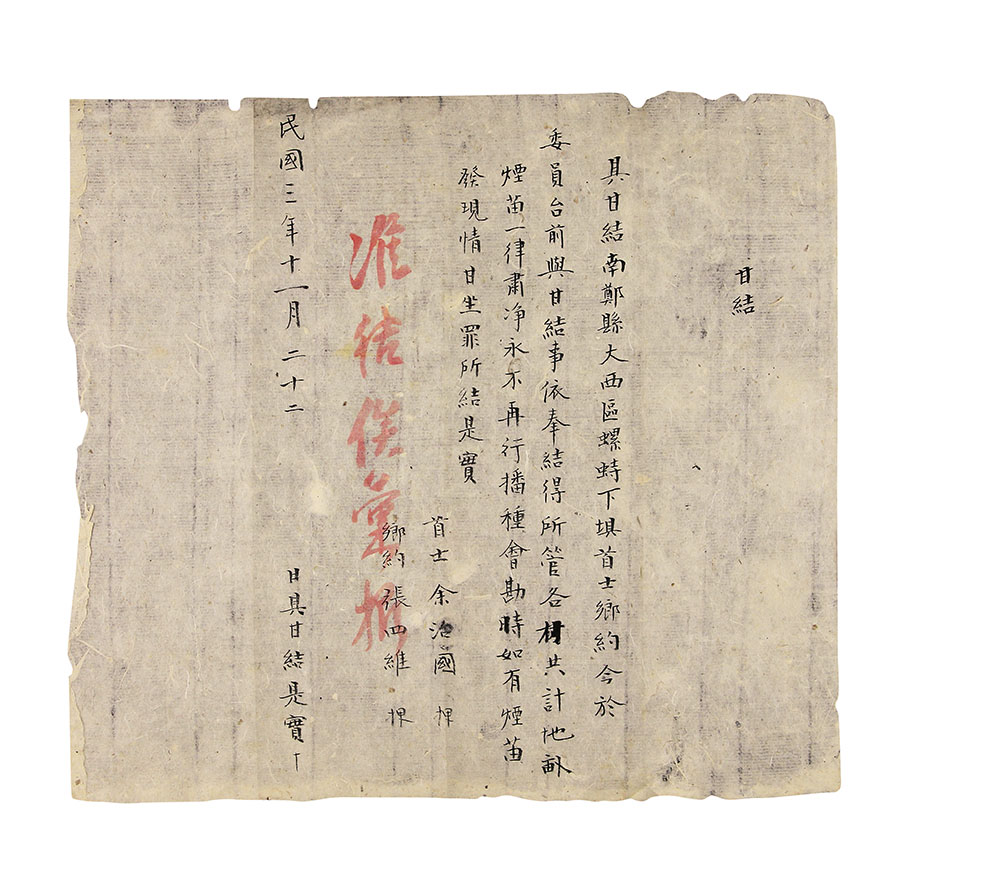 甘結
具甘結南鄭縣大西區螺蛳下垻首士鄉約今於
委員台前與甘結事依奉結得所管各村共計地畝
煙苗一律肅净永不再行播種會勘時如有煙苗
發現情甘坐罪所結是實
首士 余治國 押
鄉約 張四維 押
准結俟彙報
民國三年十一月二十二日具甘結是實